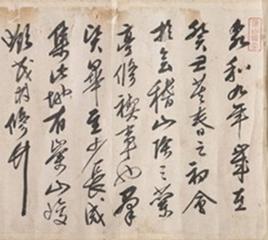 永和九年歲在
癸丑暮春之初會
於會稽山陰之蘭
亭修禊事也羣
賢畢至少長咸
集此地有崇山峻
領茂林修竹